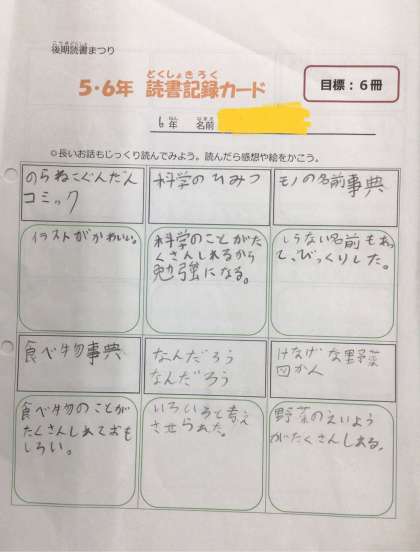 後期読書まつり
5・6年 読書記録カード
目標：6冊
6年 名前
◎長いお話もじっくり読んでみよう。読んだら感想や絵をかこう。
のらねこぐんだん
コミック
科学のひみつ
モノの名前事典
イラストがかわいい。
科学のことがた
くさんしれるから
勉強になる。
しらない名前もあっ
て、びっくりした。
食べ物事典
なんだろう
なんだろう
けなげな野菜
図かん
食べ物のことが
たくさんしれておも
しろい。
いろいろと考え
させられた。
野菜のえいよう
がたくさんしれる。